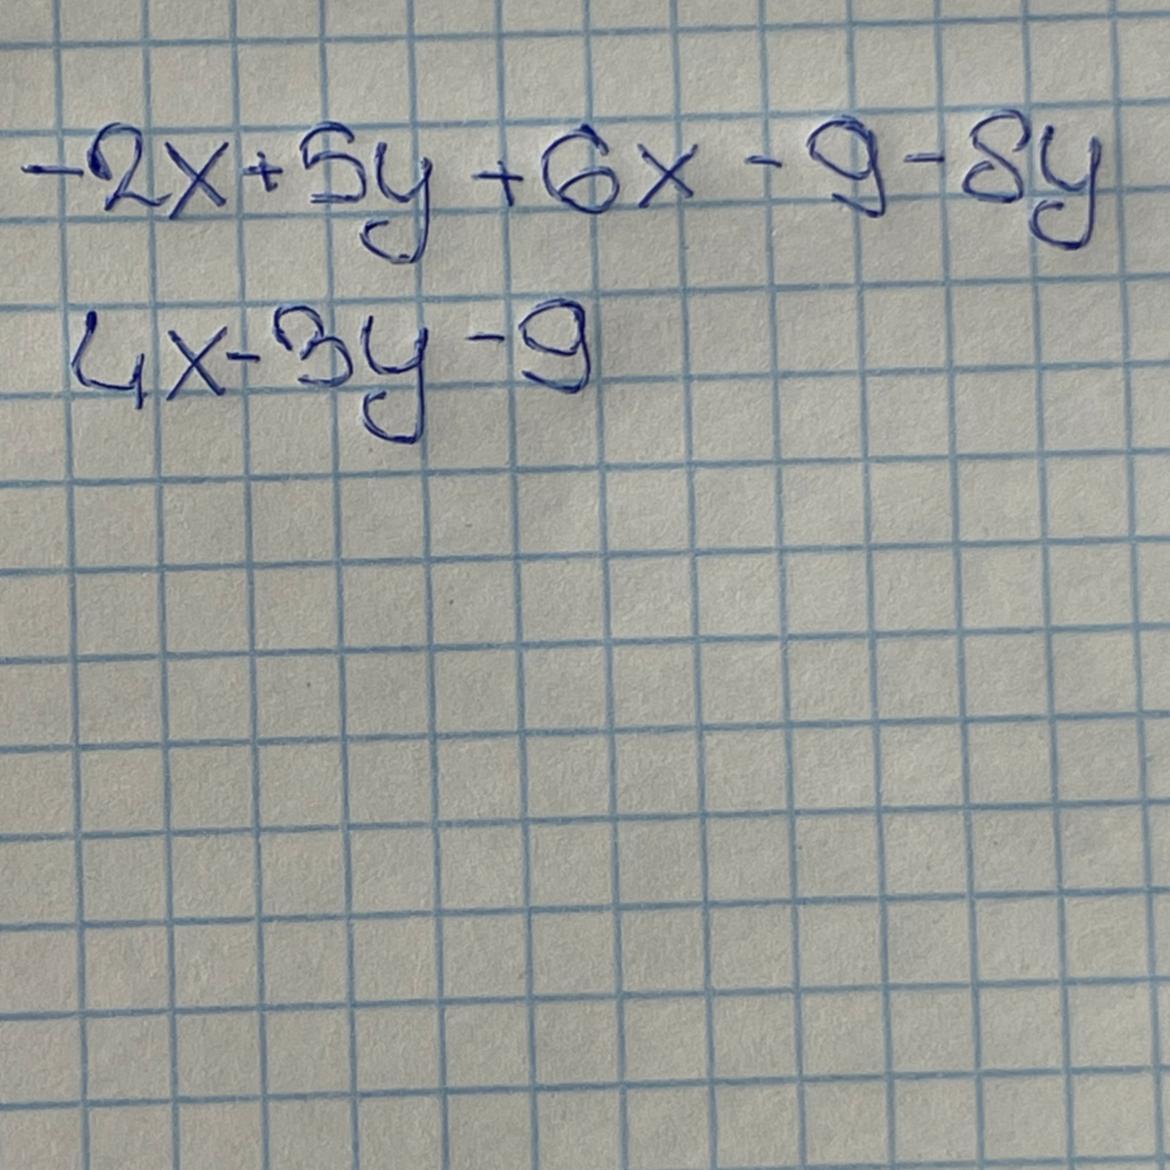 -2x+5y+6x-9-8y
4x-3y-9